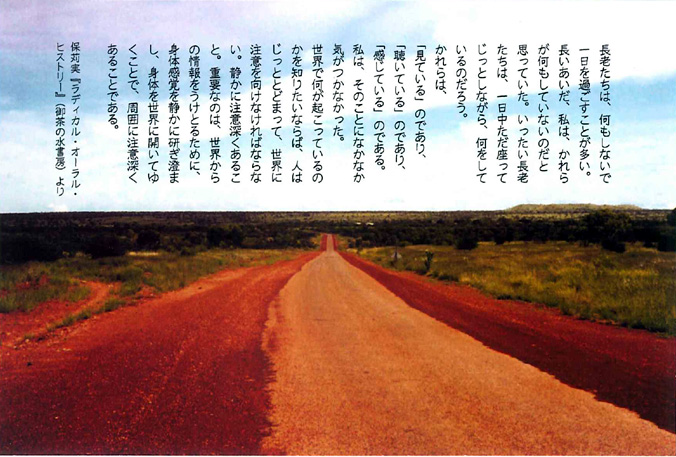 長老たちは、何もしないで
一日を過ごすことが多い。
長いあいだ、私は、かれら
が何もしていないのだと
思っていた。いったい長老
たちは、一日中ただ座って
じっとしながら、何をして
いるのだろう。
かれらは、
「見ている」のであり、
「聴いている」のであり、
「感じている」のである。
私は、そのことになかなか
気がつかなかった。
世界で何が起こっているの
かを知りたいならば、人は
じっととどまって、世界に
注意を向けなければならな
い。静かに注意深くあるこ
と。重要なのは、世界から
の情報をうけとるために、
身体感覚を静かに研ぎ澄ま
し、身体を世界に開いてゆ
くことで、周囲に注意深く
あることである。
保苅実『ラディカル・オーラル・
ヒストリー』(御茶の水書房)より